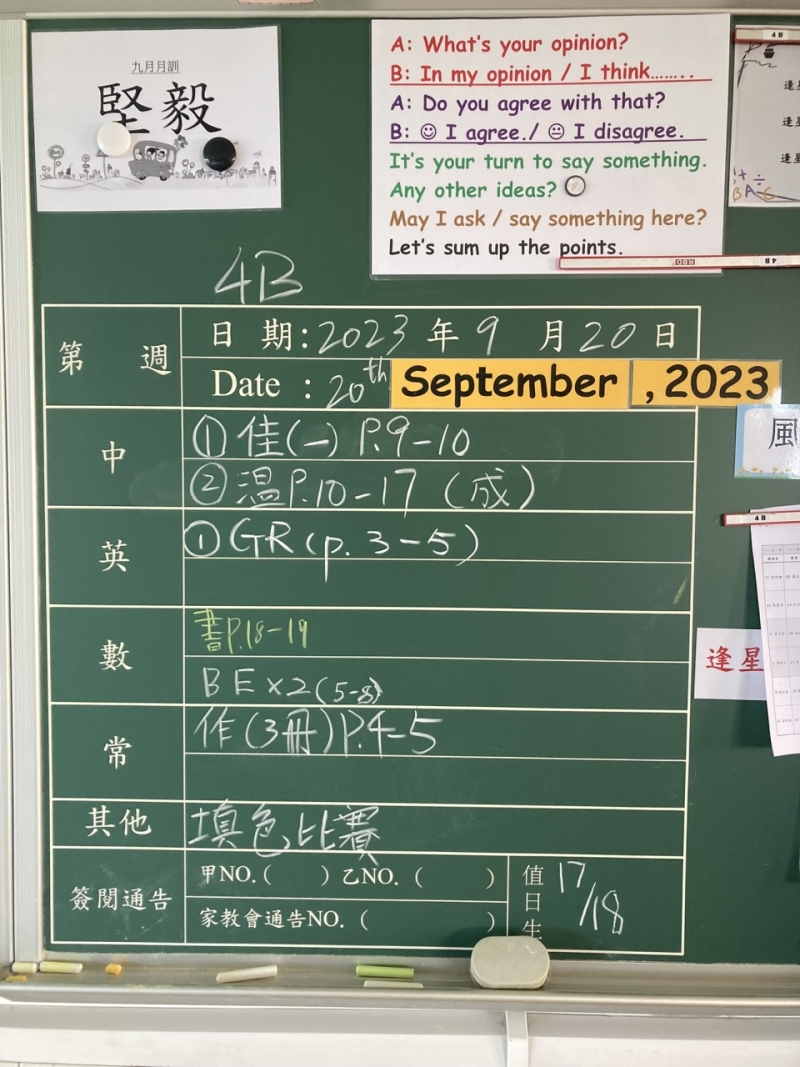 九月月訓
堅毅
A: What's your opinion?
B: In my opinion / I think........
A: Do you agree with that?
B: ☺ I agree./ 😐 I disagree.
It's your turn to say something.
Any other ideas?
May I ask / say something here?
Let's sum up the points.
4B
逢星
逢星
逢星
RED
4B
4B
第 週
日 期: 2023 年 9 月 20 日
Date : 20th September , 2023
中
① 佳(一) P.9-10
② 温 P.10-17 (成)
風
英
① GR (p. 3-5)
4B
數
書P.18-19
BE×2(5-8)
逢星
常
作(3冊)P.4-5
其他
填色比賽
簽閱通告
甲NO.( ) 乙NO. ( )
家教會通告NO. ( )
值日生
17/18